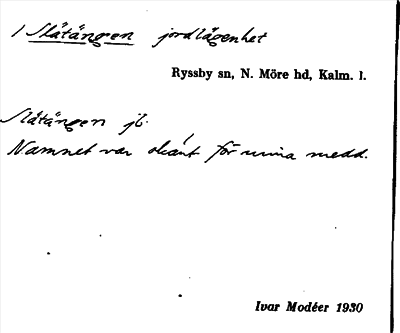 1 Slåtängen jordlägenhet
Ryssby sn, N. Möre hd, Kalm. l.
Slåtängen jb.
Namnet var okänt för mina medd.
Ivar Modéer 1930